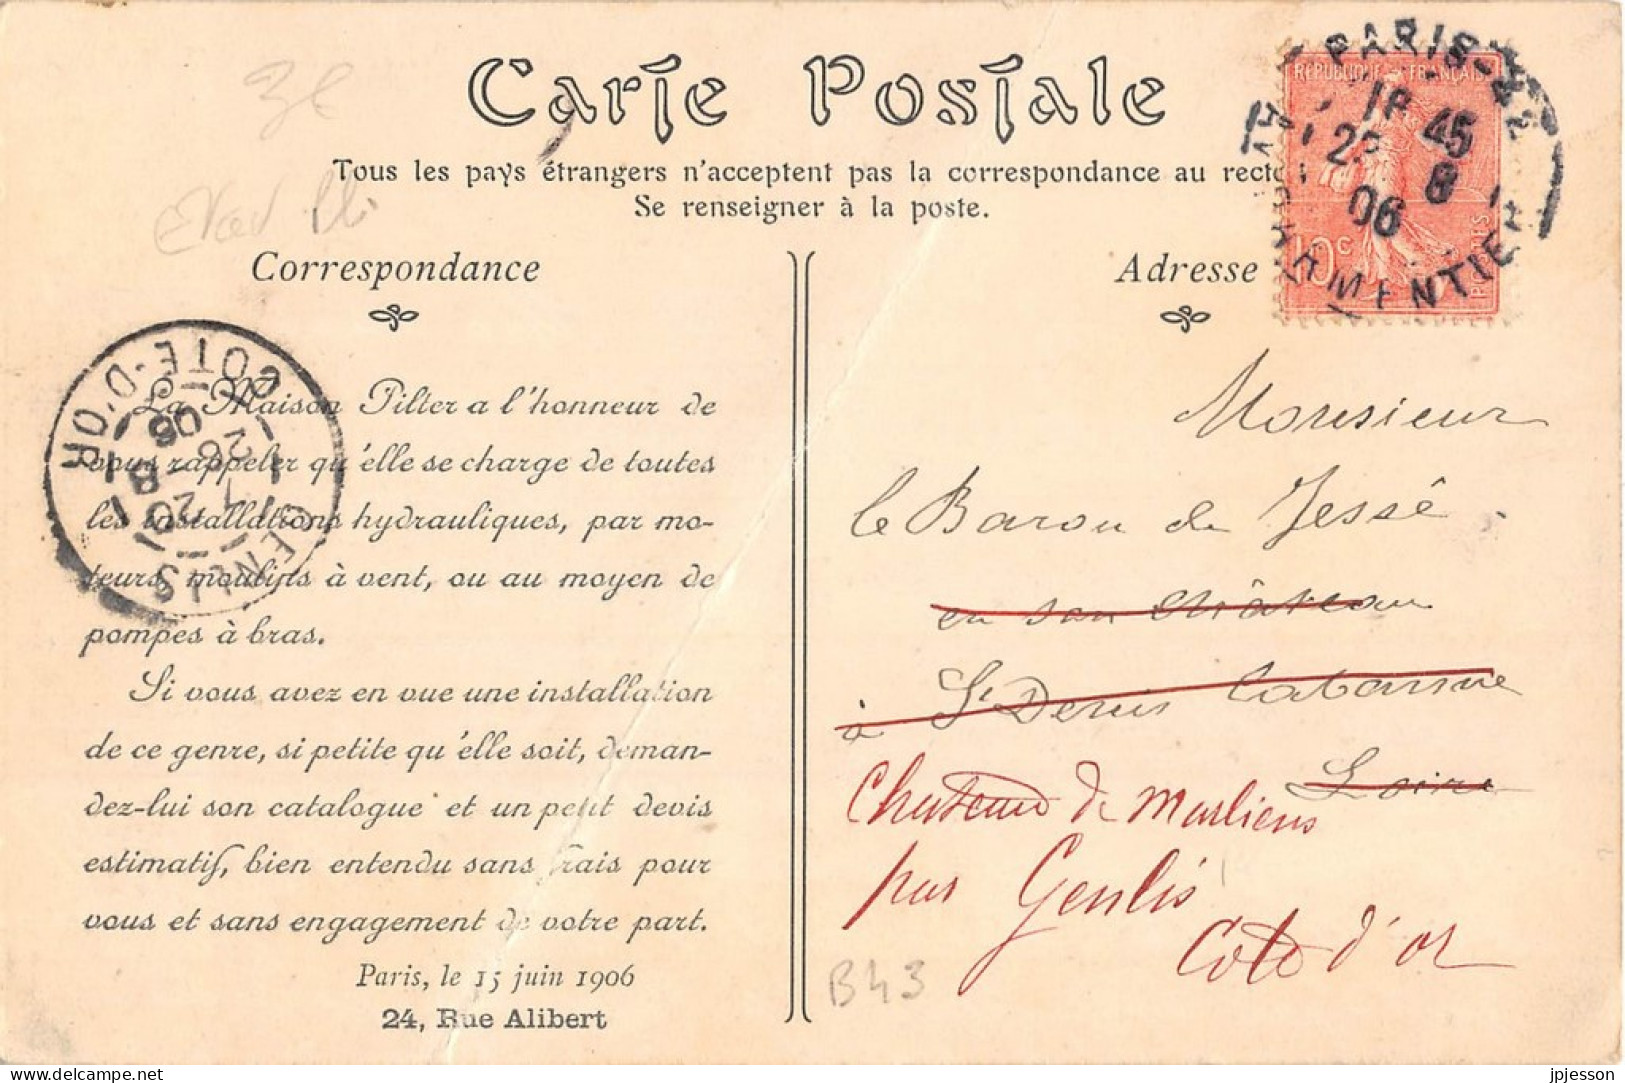 Carte Postale
Tous les pays étrangers n'acceptent pas la correspondance au recto
Se renseigner à la poste.
Correspondance
Adresse
PARIS-42
18 45
8
06
PARMENTIER
REPUBLIQUE FRANÇAISE
10c
POSTES
COTE-D'OR
7 20
26-8
06
GENLIS
La Maison Pilter a l'honneur de
vous rappeler qu'elle se charge de toutes
les installations hydrauliques, par mo-
teurs, moulins à vent, ou au moyen de
pompes à bras.
Si vous avez en vue une installation
de ce genre, si petite qu'elle soit, deman-
dez-lui son catalogue et un petit devis
estimatif, bien entendu sans frais pour
vous et sans engagement de votre part.
Paris, le 15 juin 1906
24, Rue Alibert
Monsieur
le Baron de Jessé
en son Château
à St Denis Cabanne
Loire
Chateau de Marliens
par Genlis
Cote d'or
B43
delcampe.net
jpjesson